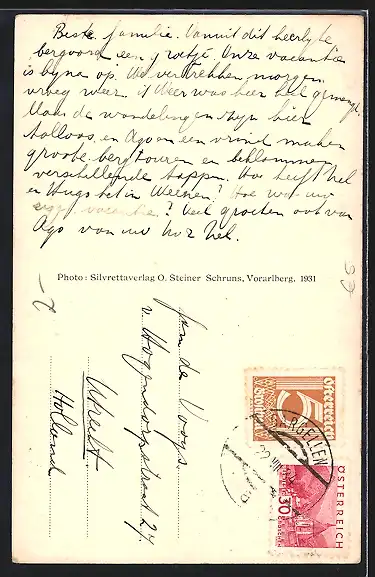 Beste familie. Vanuit dit heerlijke
bergoord een groetje. Onze vacantie
is bijna op. We vertrekken morgen
vroeg weer. 't Weer was hier heel gemengd.
Maar de wandelingen zijn hier
talloos, en Ago en een vriend maken
groote bergtouren en beklommen
verschillende toppen. Hoe heeft Nel
en Hugo het in Weenen? Hoe was uw
vacantie? Veel groeten ook van
Ago van uw Nel.
Photo: Silvrettaverlag O. Steiner Schruns, Vorarlberg. 1931
Fam de Vooys.
v. Hogendorpstraat 27
Utrecht.
Holland
5
Österreich
ÖSTERREICH
30